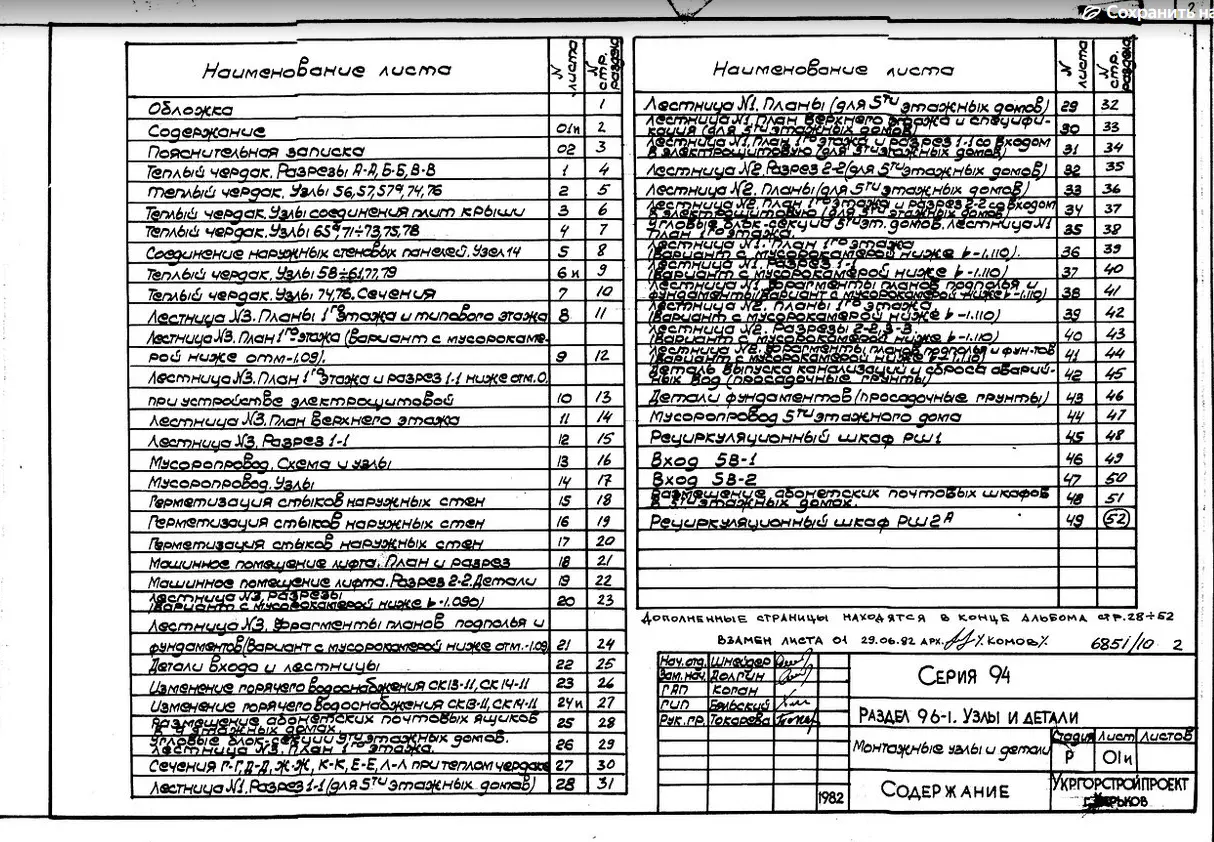 Сохранить на
Наименование листа | N листа | N стр. раздела
Обложка | | 1
Содержание | 01и | 2
Пояснительная записка | 02 | 3
Теплый чердак. Разрезы А-А, Б-Б, В-В | 1 | 4
Теплый чердак. Узлы 56, 57, 57а, 74, 76 | 2 | 5
Теплый чердак. Узлы соединения плит крыши | 3 | 6
Теплый чердак. Узлы 65а, 71÷73, 75, 78 | 4 | 7
Соединение наружных стеновых панелей. Узел 14 | 5 | 8
Теплый чердак. Узлы 58÷61, 77, 79 | 6и | 9
Теплый чердак. Узлы 74, 76. Сечения | 7 | 10
Лестница N3. Планы 1го этажа и типового этажа | 8 | 11
Лестница N3. План 1го этажа (Вариант с мусорокаме-
рой ниже отм -1.09). | 9 | 12
Лестница N3. План 1го этажа и разрез 1-1 ниже отм. 0.
при устройстве электрощитовой | 10 | 13
Лестница N3. План верхнего этажа | 11 | 14
Лестница N3. Разрез 1-1 | 12 | 15
Мусоропровод. Схема и узлы | 13 | 16
Мусоропровод. Узлы | 14 | 17
Герметизация стыков наружных стен | 15 | 18
Герметизация стыков наружных стен | 16 | 19
Герметизация стыков наружных стен | 17 | 20
Машинное помещение лифта. План и разрез | 18 | 21
Машинное помещение лифта. Разрез 2-2. Детали | 19 | 22
Лестница N3. Разрезы
(Вариант с мусорокамерой ниже -1.090) | 20 | 23
Лестница N3. Фрагменты планов подполья и
фундаментов (Вариант с мусорокамерой ниже отм. -1.09) | 21 | 24
Детали входа и лестницы | 22 | 25
Изменение горячего водоснабжения СК13-11, СК14-11 | 23 | 26
Изменение горячего водоснабжения СК13-11, СК14-11 | 24и | 27
Размещение абонетских почтовых ящиков
в 9 этажных домах. | 25 | 28
Угловые блок-секции 9ти этажных домов.
Лестница N3. План 1го этажа. | 26 | 29
Сечения Г-Г, Д-Д, Ж-Ж, К-К, Е-Е, Л-Л при теплом чердаке | 27 | 30
Лестница N1. Разрез 1-1 (для 5ти этажных домов) | 28 | 31
Наименование листа | N листа | N стр. раздела
Лестница N1. Планы (для 5ти этажных домов) | 29 | 32
Лестница N1. План верхнего этажа и специфи-
кация (для 5ти этажных домов) | 30 | 33
Лестница N1. План 1го этажа и разрез 1-1 со входом
в электрощитовую (для 5ти этажных домов) | 31 | 34
Лестница N2. Разрез 2-2 (для 5ти этажных домов) | 32 | 35
Лестница N2. Планы (для 5ти этажных домов) | 33 | 36
Лестница N2. План 1го этажа и разрез 2-2 со входом
в электрощитовую (для 5ти этажных домов) | 34 | 37
Угловые блок-секции 5ти эт. домов. Лестница N1
План 1го этажа. | 35 | 38
Лестница N1. План 1го этажа
(Вариант с мусорокамерой ниже -1.110). | 36 | 39
Лестница N1. Разрез 1-1
(Вариант с мусорокамерой ниже -1.110) | 37 | 40
Лестница N1. Фрагменты планов подполья и
фундаменты (Вариант с мусорокамерой ниже -1.110) | 38 | 41
Лестница N2. Планы 1го этажа
(Вариант с мусорокамерой ниже -1.110) | 39 | 42
Лестница N2. Разрезы 2-2, 3-3.
(Вариант с мусорокамерой ниже -1.110) | 40 | 43
Лестница N2. Фрагменты планов подполья и фун-тов
(Вариант с мусорокамерой ниже -1.110) | 41 | 44
Деталь выпуска канализации и сброса аварий-
ных вод (просадочные грунты) | 42 | 45
Детали фундаментов (просадочные грунты) | 43 | 46
Мусоропровод 5ти этажного дома | 44 | 47
Рециркуляционный шкаф РШ1 | 45 | 48
Вход 5В-1 | 46 | 49
Вход 5В-2 | 47 | 50
Размещение абонетских почтовых шкафов
в 5ти этажных домах. | 48 | 51
Рециркуляционный шкаф РШ2А | 49 | 52
Дополненные страницы находятся в конце альбома стр. 28÷52
Взамен листа 01 29.06.82 арх. /Комов/.
6851/10 2
Нач. отд. Шнейдер
Зам. нач. Долгин
ГАП Коган
ГИП Бельский
Рук. гр. Токарева
1982
Серия 94
Раздел 96-1. Узлы и детали
Монтажные узлы и детали
Стадия Лист Листов
Р 01и
Содержание
Укргорстройпроект
г. Харьков